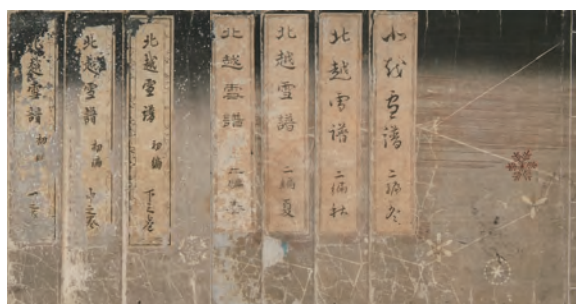 北越雪譜 初編
北越雪譜 初編 中之巻
北越雪譜 初編 下之巻
北越雪譜 二編 春
北越雪譜 二編 夏
北越雪譜 二編 秋
北越雪譜 二編 冬